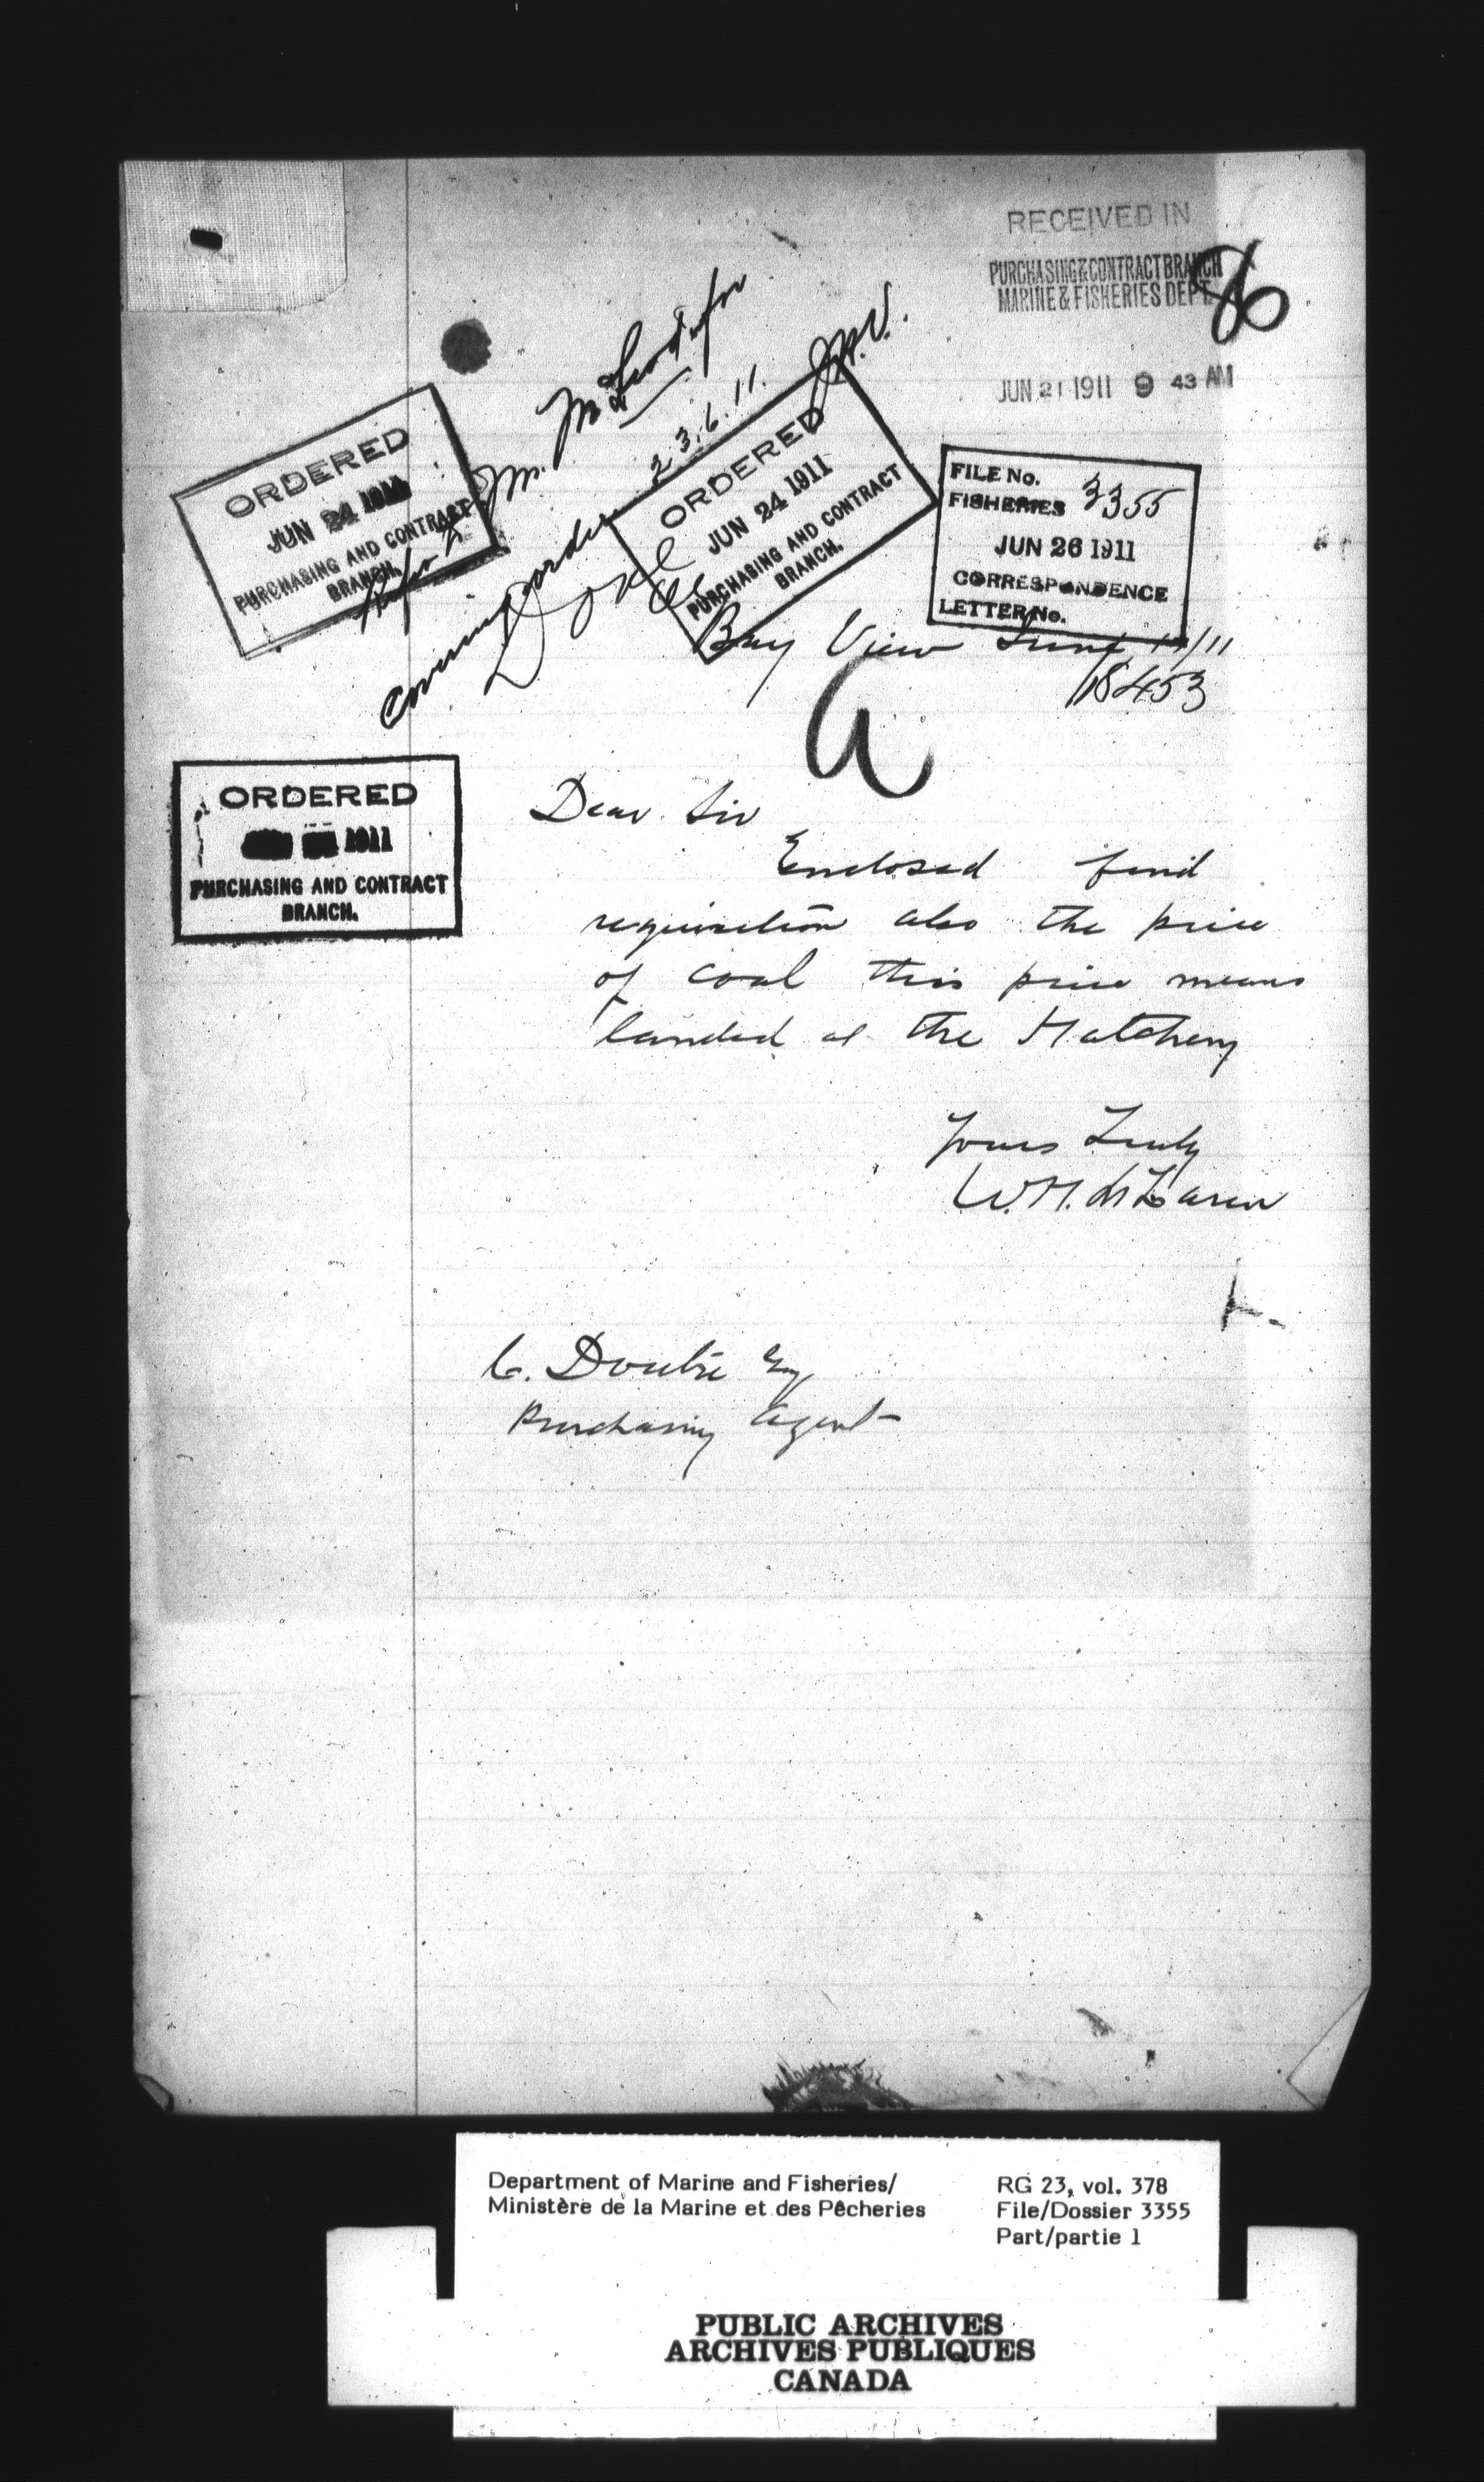 RECEIVED IN
PURCHASING & CONTRACT BRANCH
MARINE & FISHERIES DEPT.
JUN 21 1911 9 43 AM
ORDERED
JUN 24 1911
PURCHASING AND CONTRACT
BRANCH.
covering order
23.6.11.
ORDERED
JUN 24 1911
PURCHASING AND CONTRACT
BRANCH.
FILE No.
FISHERIES 3355
JUN 26 1911
CORRESPONDENCE
LETTER No.
Bay View June /11
18453
a
ORDERED
1911
PURCHASING AND CONTRACT
BRANCH.
Dear Sir
Enclosed find
requisition also the price
of coal this price means
landed at the Hatchery
Yours Truly
W.H. McLaren
C. Doutre Esq
Purchasing Agent
Department of Marine and Fisheries/
Ministère de la Marine et des Pêcheries
RG 23, vol. 378
File/Dossier 3355
Part/partie 1
PUBLIC ARCHIVES
ARCHIVES PUBLIQUES
CANADA